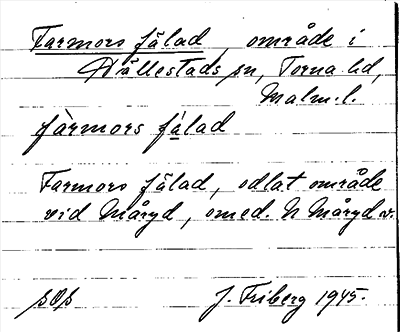 Farmors fälad, område i
Hällestads sn, Torna hd,
Malm. l.
fàrmors fälad
Farmors fälad, odlat område
vid Måryd, omed. N Måryd
J. Friberg 1945.